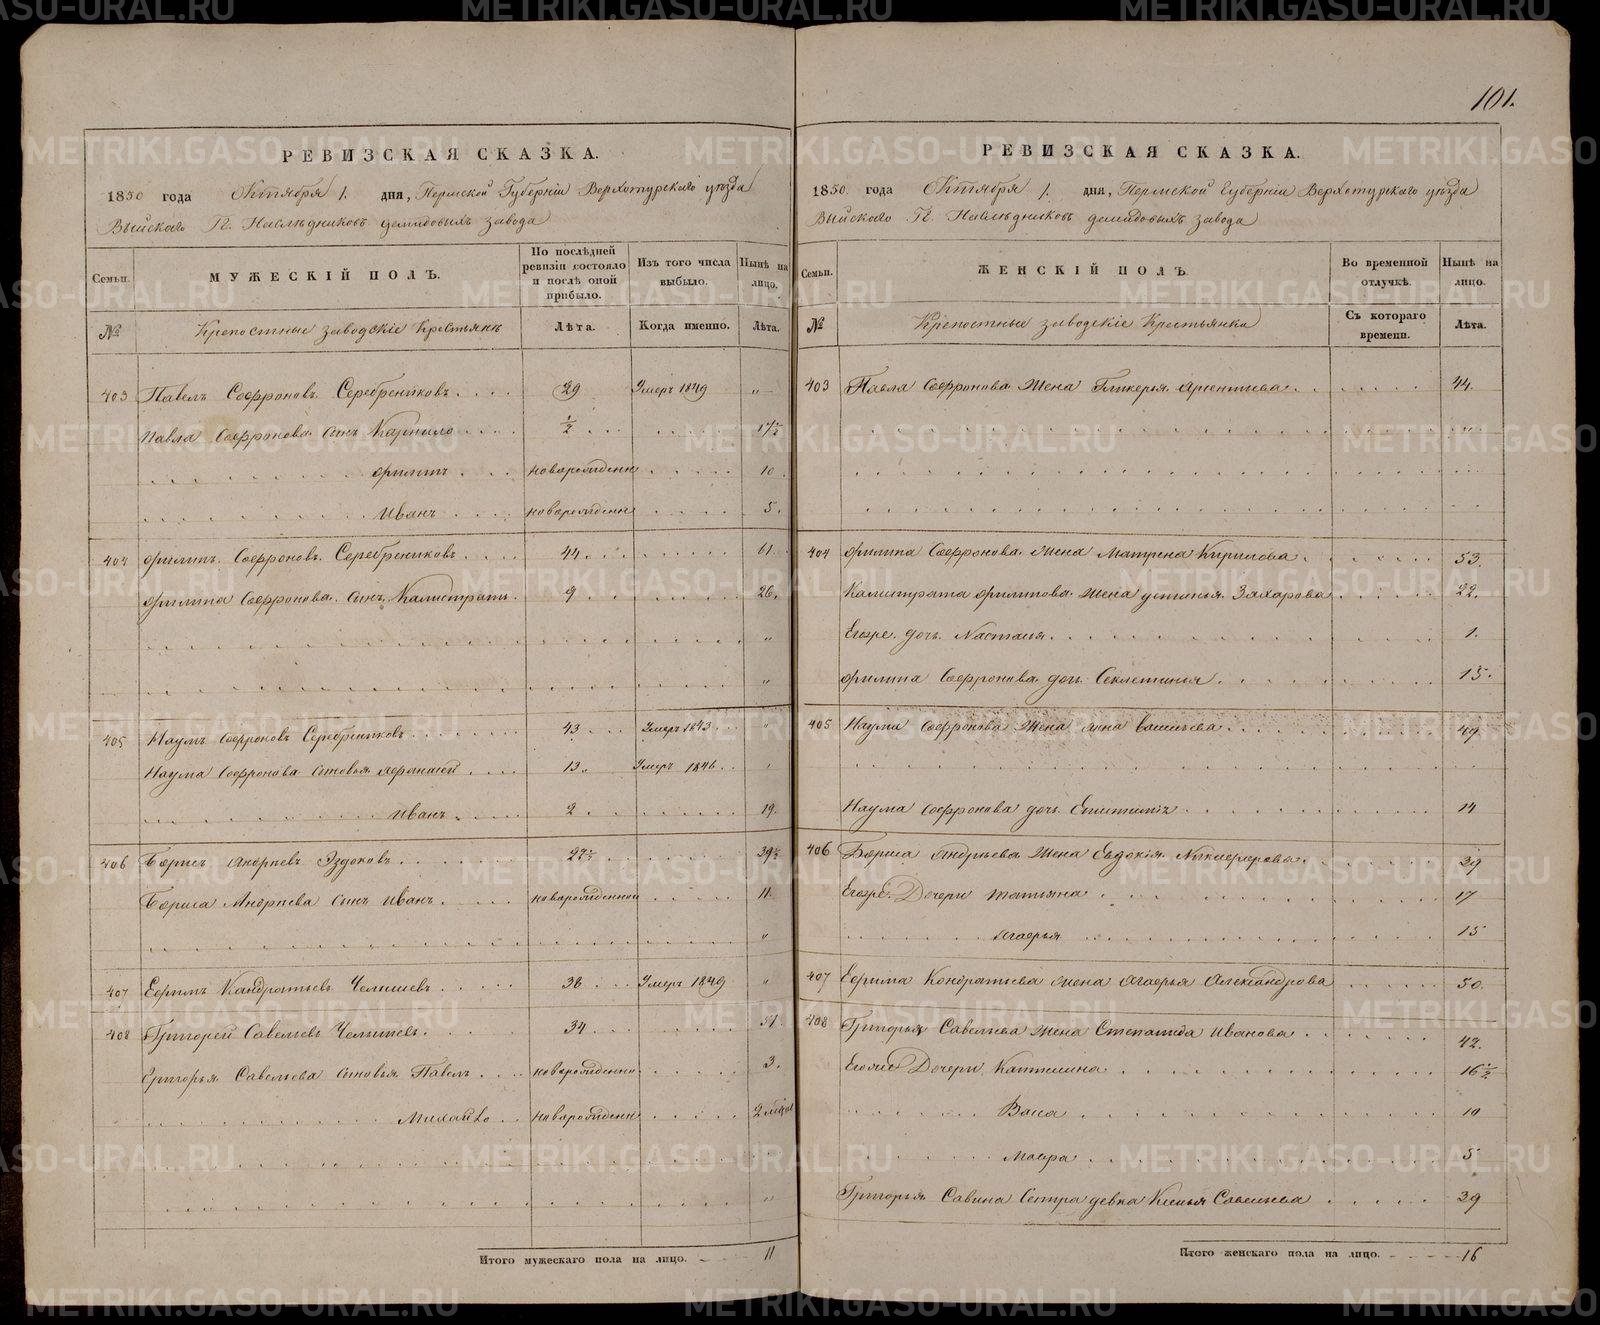 101.
РЕВИЗСКАЯ СКАЗКА.
1850 года Октября 1. дня, Пермской Губерніи Верхотурскаго уѣзда
Выйскаго Гг. Наслѣдниковъ демидовыхъ завода
Семьи. МУЖЕСКІЙ ПОЛЪ. По послѣдней ревизіи состояло и послѣ оной прибыло. Изъ того числа выбыло. Нынѣ на лицо.
№ Крепостные заводскіе Крестьяне Лѣта. Когда именно. Лѣта.
403 Павелъ Софроновъ Серебрениковъ 29 Умеръ 1849 "
Павла Софронова сынъ Карнило ½ 17½
Филипъ новорожденн 10
Иванъ новорожденн 5.
404 Филипъ Софроновъ Серебрениковъ 44 61
Филипа Софронова сынъ Калистратъ 9 26.
"
"
405 Наумъ Софроновъ Серебрениковъ 43 Умеръ 1843 "
Наума Софронова сыновья Афонасей 13. Умеръ 1846
Иванъ 2 19.
406 Борисъ Андреевъ Эздоковъ 27½ 39½
Бориса Андреева сынъ Иванъ новорожденной 11.
"
407 Ефимъ Кандратьевъ Челышевъ 36 Умеръ 1849 "
408 Григорей Савельевъ Челышевъ 34 51.
Григорья Савельева сыновья Павелъ новорожденн 3.
Михайло новорожденн 2
"
Итого мужескаго пола на лицо. 11
РЕВИЗСКАЯ СКАЗКА.
1850. года Октября 1. дня, Пермской Губерніи Верхотурскаго уѣзда
Выйскаго Гг. Наслѣдниковъ демидовыхъ завода
Семьи. ЖЕНСКІЙ ПОЛЪ. Во временной отлучкѣ. Нынѣ на лицо.
№ Крепостные заводскіе Крестьянки Съ котораго времени. Лѣта.
403 Павла Софронова жена Гликерья 44.
404 Филипа Софронова жена Матрена Кирилова 53.
Калистрата Филипова жена Устинья Захарова 22.
Егоже дочь Настасья 1.
Филипа Софронова дочь Секлетинья 15.
405 Наума Софронова жена Анна Васильева 49
Наума Софронова дочь 14
406 Бориса Андреева жена Евдокія Никифорова 39
Егоже Дочери Татьяна 17
Агафья 15
407 Ефима Кондратьева жена Агафья Александрова 50.
408 Григорья Савельева жена Степанида Иванова 42.
Егоже Дочери 16½
Васа 10
Мавра 5
Григорья Савина Сестра девка Савельева 39
Итого женскаго пола на лицо. 16
METRIKI.GASO-URAL.RU